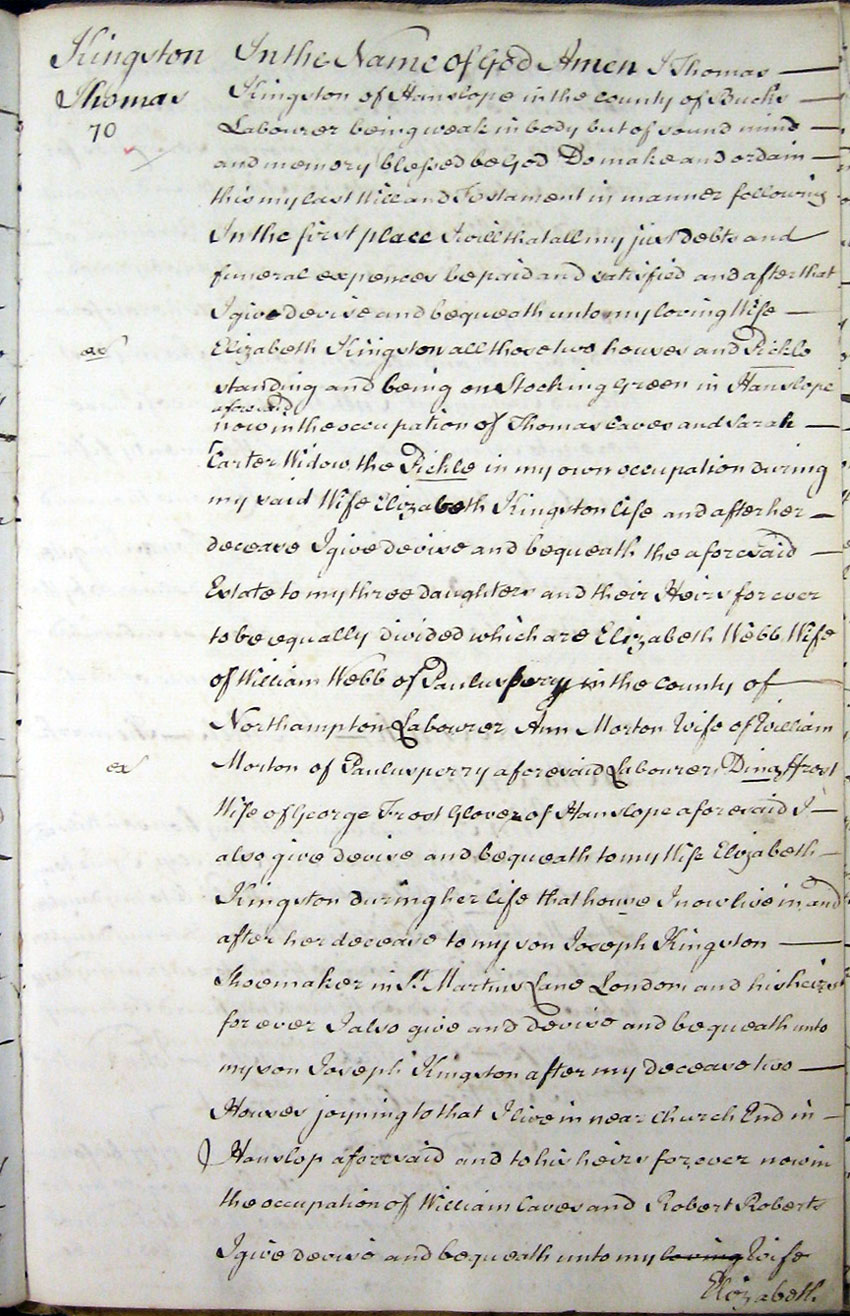 Kingston
Thomas
70
In the Name of God Amen I Thomas
Kingston of Hanslope in the county of Bucks
Labourer being weak in body but of sound mind
and memory blessed be God Do make and ordain
this my last Will and Testament in manner following
In the first place I will that all my just debts and
funeral expences be paid and satisfied and after that
I give devise and bequeath unto my loving Wife
ex
Elizabeth Kingston all those two houses and Pickle
standing and being on Stocking Green in Hanslope
aforesaid
now in the occupation of Thomas Caves and Sarah
Carter Widow, the Pickle in my own occupation during
my said Wife Elizabeth Kingston life and after her
decease I give devise and bequeath the aforesaid
Estate to my three daughters and their Heirs for ever
to be equally divided which are Elizabeth Webb Wife
of William Webb of Pauluspery in the county of
Northampton Labourer, Ann Morton Wife of William
ex
Morton of Pauluspery aforesaid Labourer, Dina Frost
Wife of George Frost Glover of Hanslope aforesaid I
also give devise and bequeath to my Wife Elizabeth
Kingston during her life that house I now live in, and
after her decease to my son Joseph Kingston
Shoemaker in St Martins Lane London and his heirs
for ever I also give and devise and bequeath unto
my son Joseph Kingston after my decease two
Houses joyning to that I live in near Church End in
Hanslop aforesaid and to his heirs for ever now in
the occupation of William Caves and Robert Roberts
I give devise and bequeath unto my loving Wife
Elizabeth